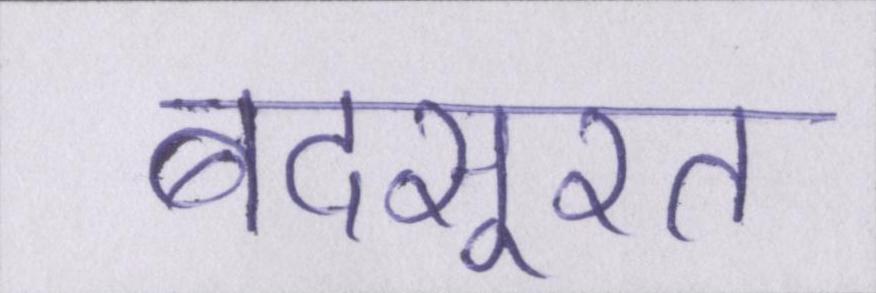 बदसूरत